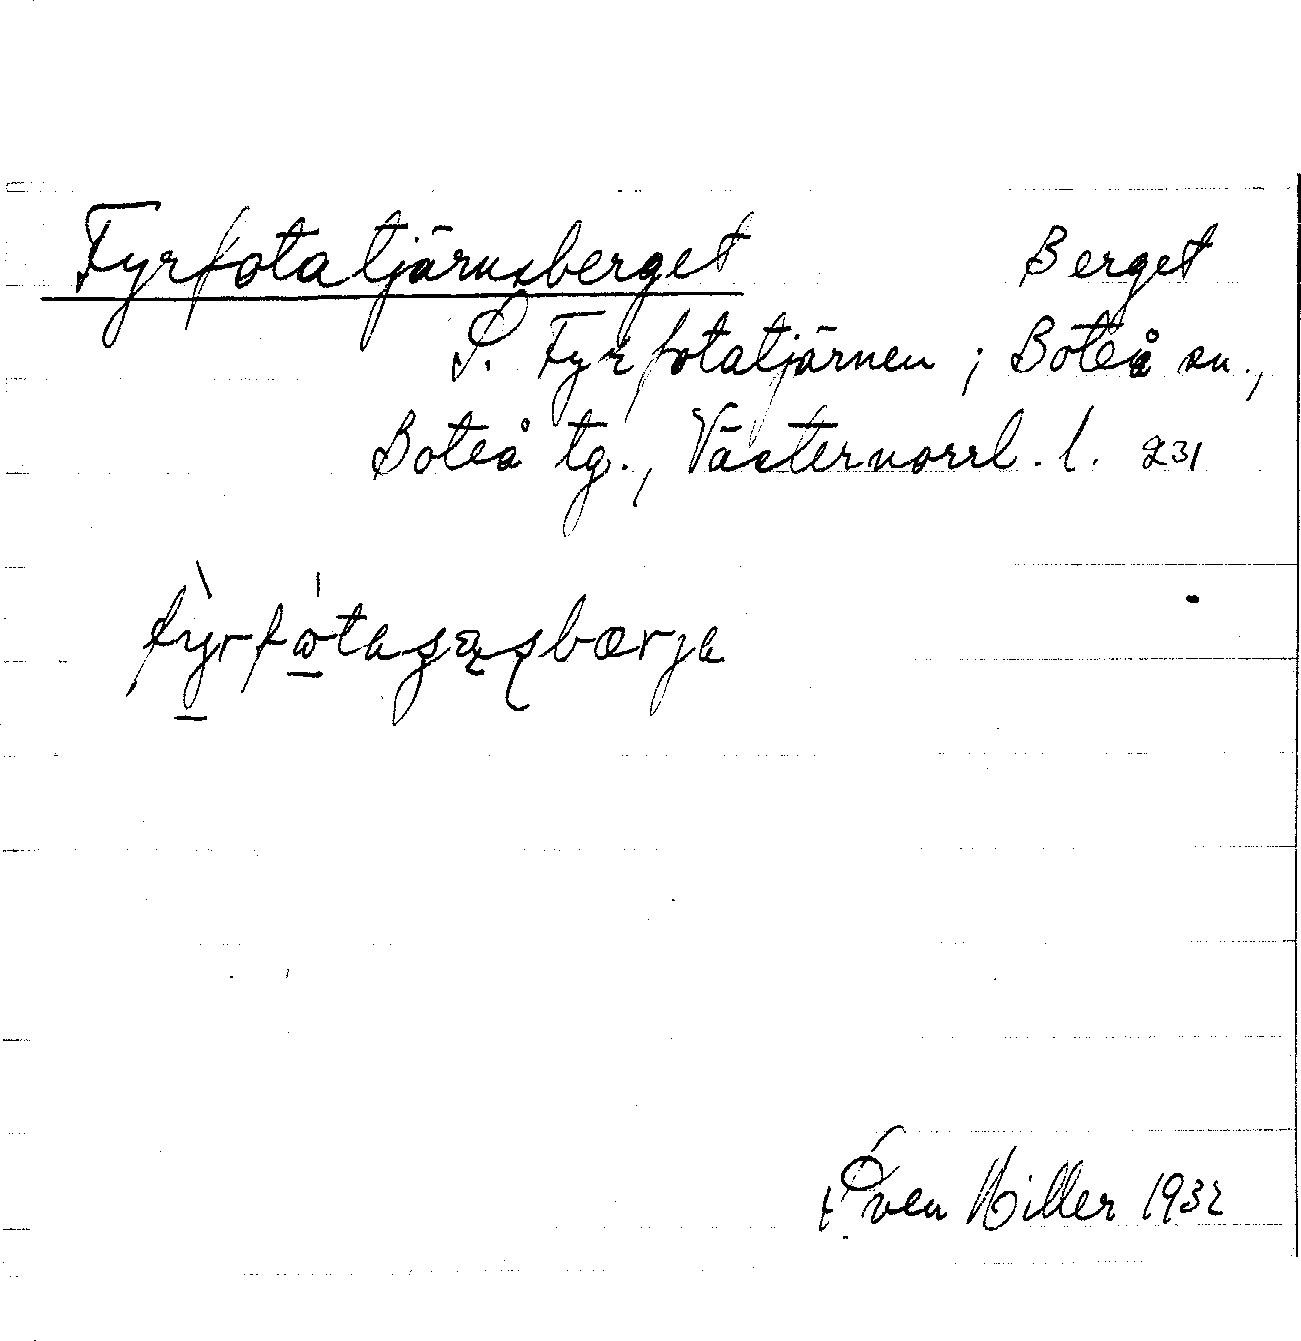 Fyrfotatjärnsberget Berget
S. Fyrfotatjärnen ; Boteå sn.,
Boteå tg., Västernorrl. l. 231
Sven Hiller 1932